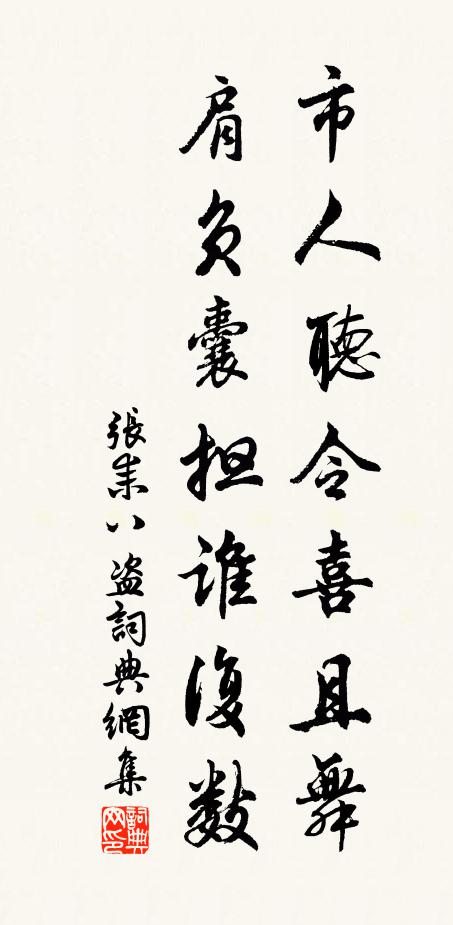 市人聽令喜且舞
肩負囊担誰復數
張耒八盜詞典網集
詞典網印